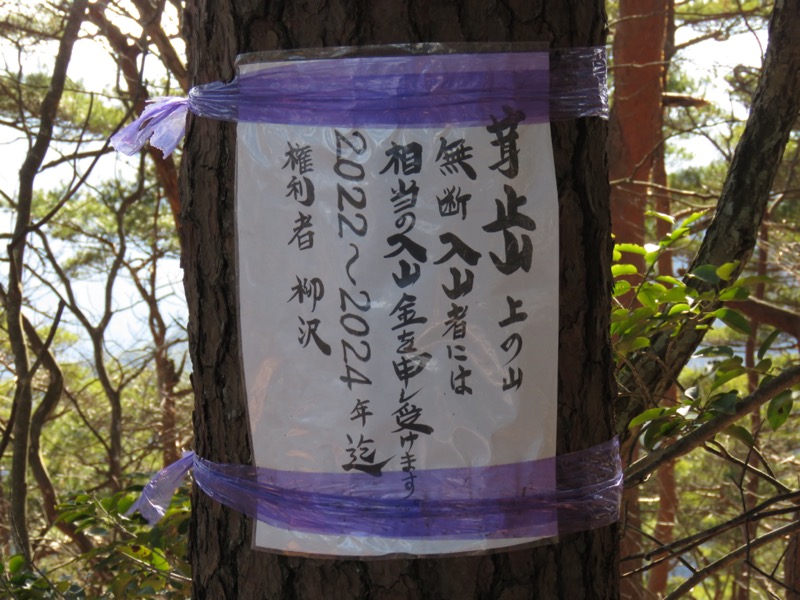 茸止山 上の山
無断入山者には
相当の入山金を申し受けます
2022〜2024年迄
権利者 柳沢